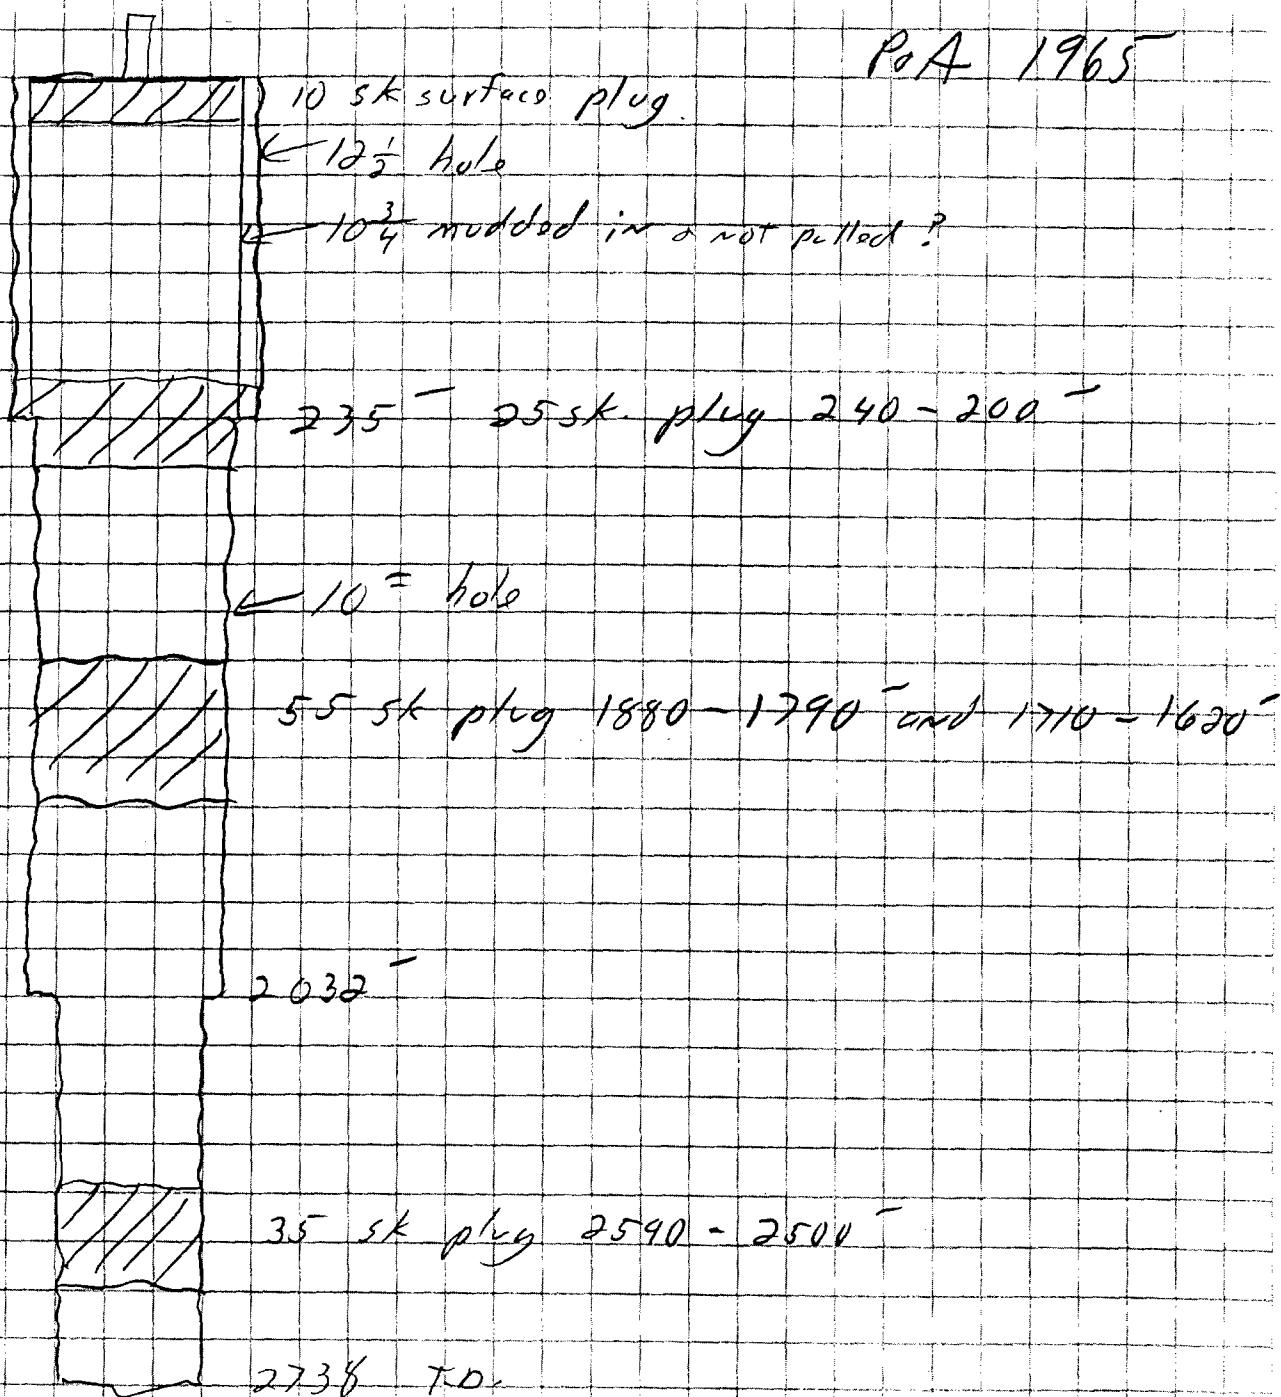 P&A 1965
10 sk surface plug.
12 1/2 hole
10 3/4 mudded in & not pulled ?
235' 25 sk. plug 240 - 200'
10" hole
55 sk plug 1880 - 1790' and 1710 - 1620'
2032'
35 sk plug 2590 - 2500'
2738 T.D.